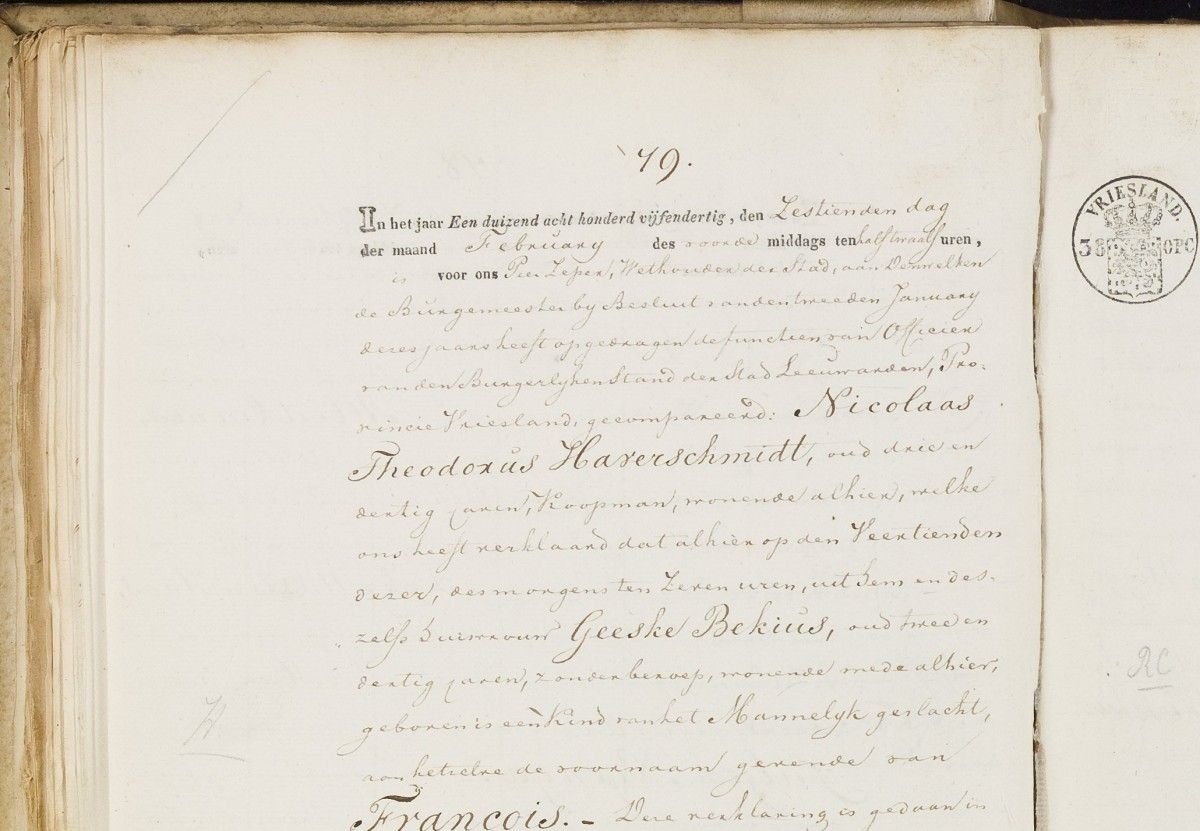 79.
In het jaar Een duizend acht honderd vijfendertig, den Zestienden dag
der maand February des voorde middags ten half twaalf uren,
is voor ons Pier Zeper, Wethouder der Stad, aan Denwelken
de Burgemeester by Besluit van den tweeden January
dezes jaars heeft opgedragen de functien van Officier
van den Burgerlyken Stand der Stad Leeuwarden, Pro-
vincie Vriesland, gecompareerd: Nicolaas
Theodorus Haverschmidt, oud drie en
dertig jaren, Koopman, wonende alhier, welke
ons heeft verklaard dat alhier op den Veertienden
dezer, des morgens ten Zeven uren, uit hem en des-
zelfs huisvrouw Geeske Bekius, oud twee en
dertig jaren, zonder beroep, wonende mede alhier,
geboren is een Kind van het Mannelyk geslacht,
aan hetzelve de voornaam gevende van
François. - Deze verklaring is gedaan in
VRIESLAND.
38 OPC
RC